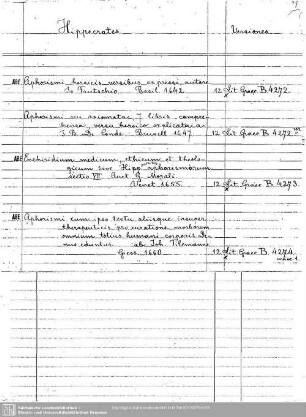 Hippocrates Versiones
Aphorismi heroicis versibus expressi autore
Jo Frutschio. Basil. 1642. 12 Lit Graec B. 4272.
Aphorismi seu axiomatae 7 libris compre-
hensa versu heroico explicata a
J. B. De Conde. Bruxell 1647. 12 Lit Graec B 4272
Enchiridium medicum, ethicum et theolo-
gicum sive Hipp. aphorismorum
sectio VII Auct. G. Morali
Venet 1655. 12 Lit Graec B 4273.
Aphorismi cum perpetu aliisque insuper
therapeuticis pro curatione morborum
omnium totius humani corporis
nus eduntur. ab Joh. Tilemanno
Giess. 1660. 12. Lit Graec B. 4274.